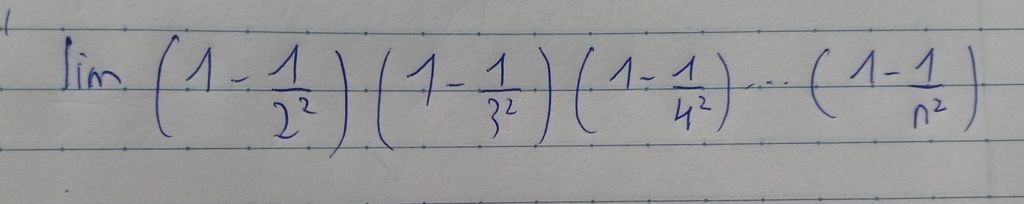 lim (1 - 1/2²) (1 - 1/3²) (1 - 1/4²) ... (1 - 1/n²)